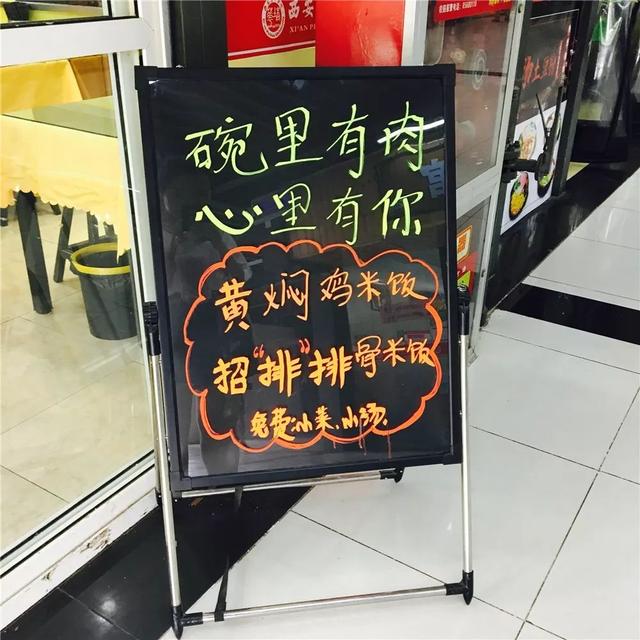 碗里有肉
心里有你
黄焖鸡米饭
招“排”排骨米饭
免费小菜.小汤.
西安
XI'AN